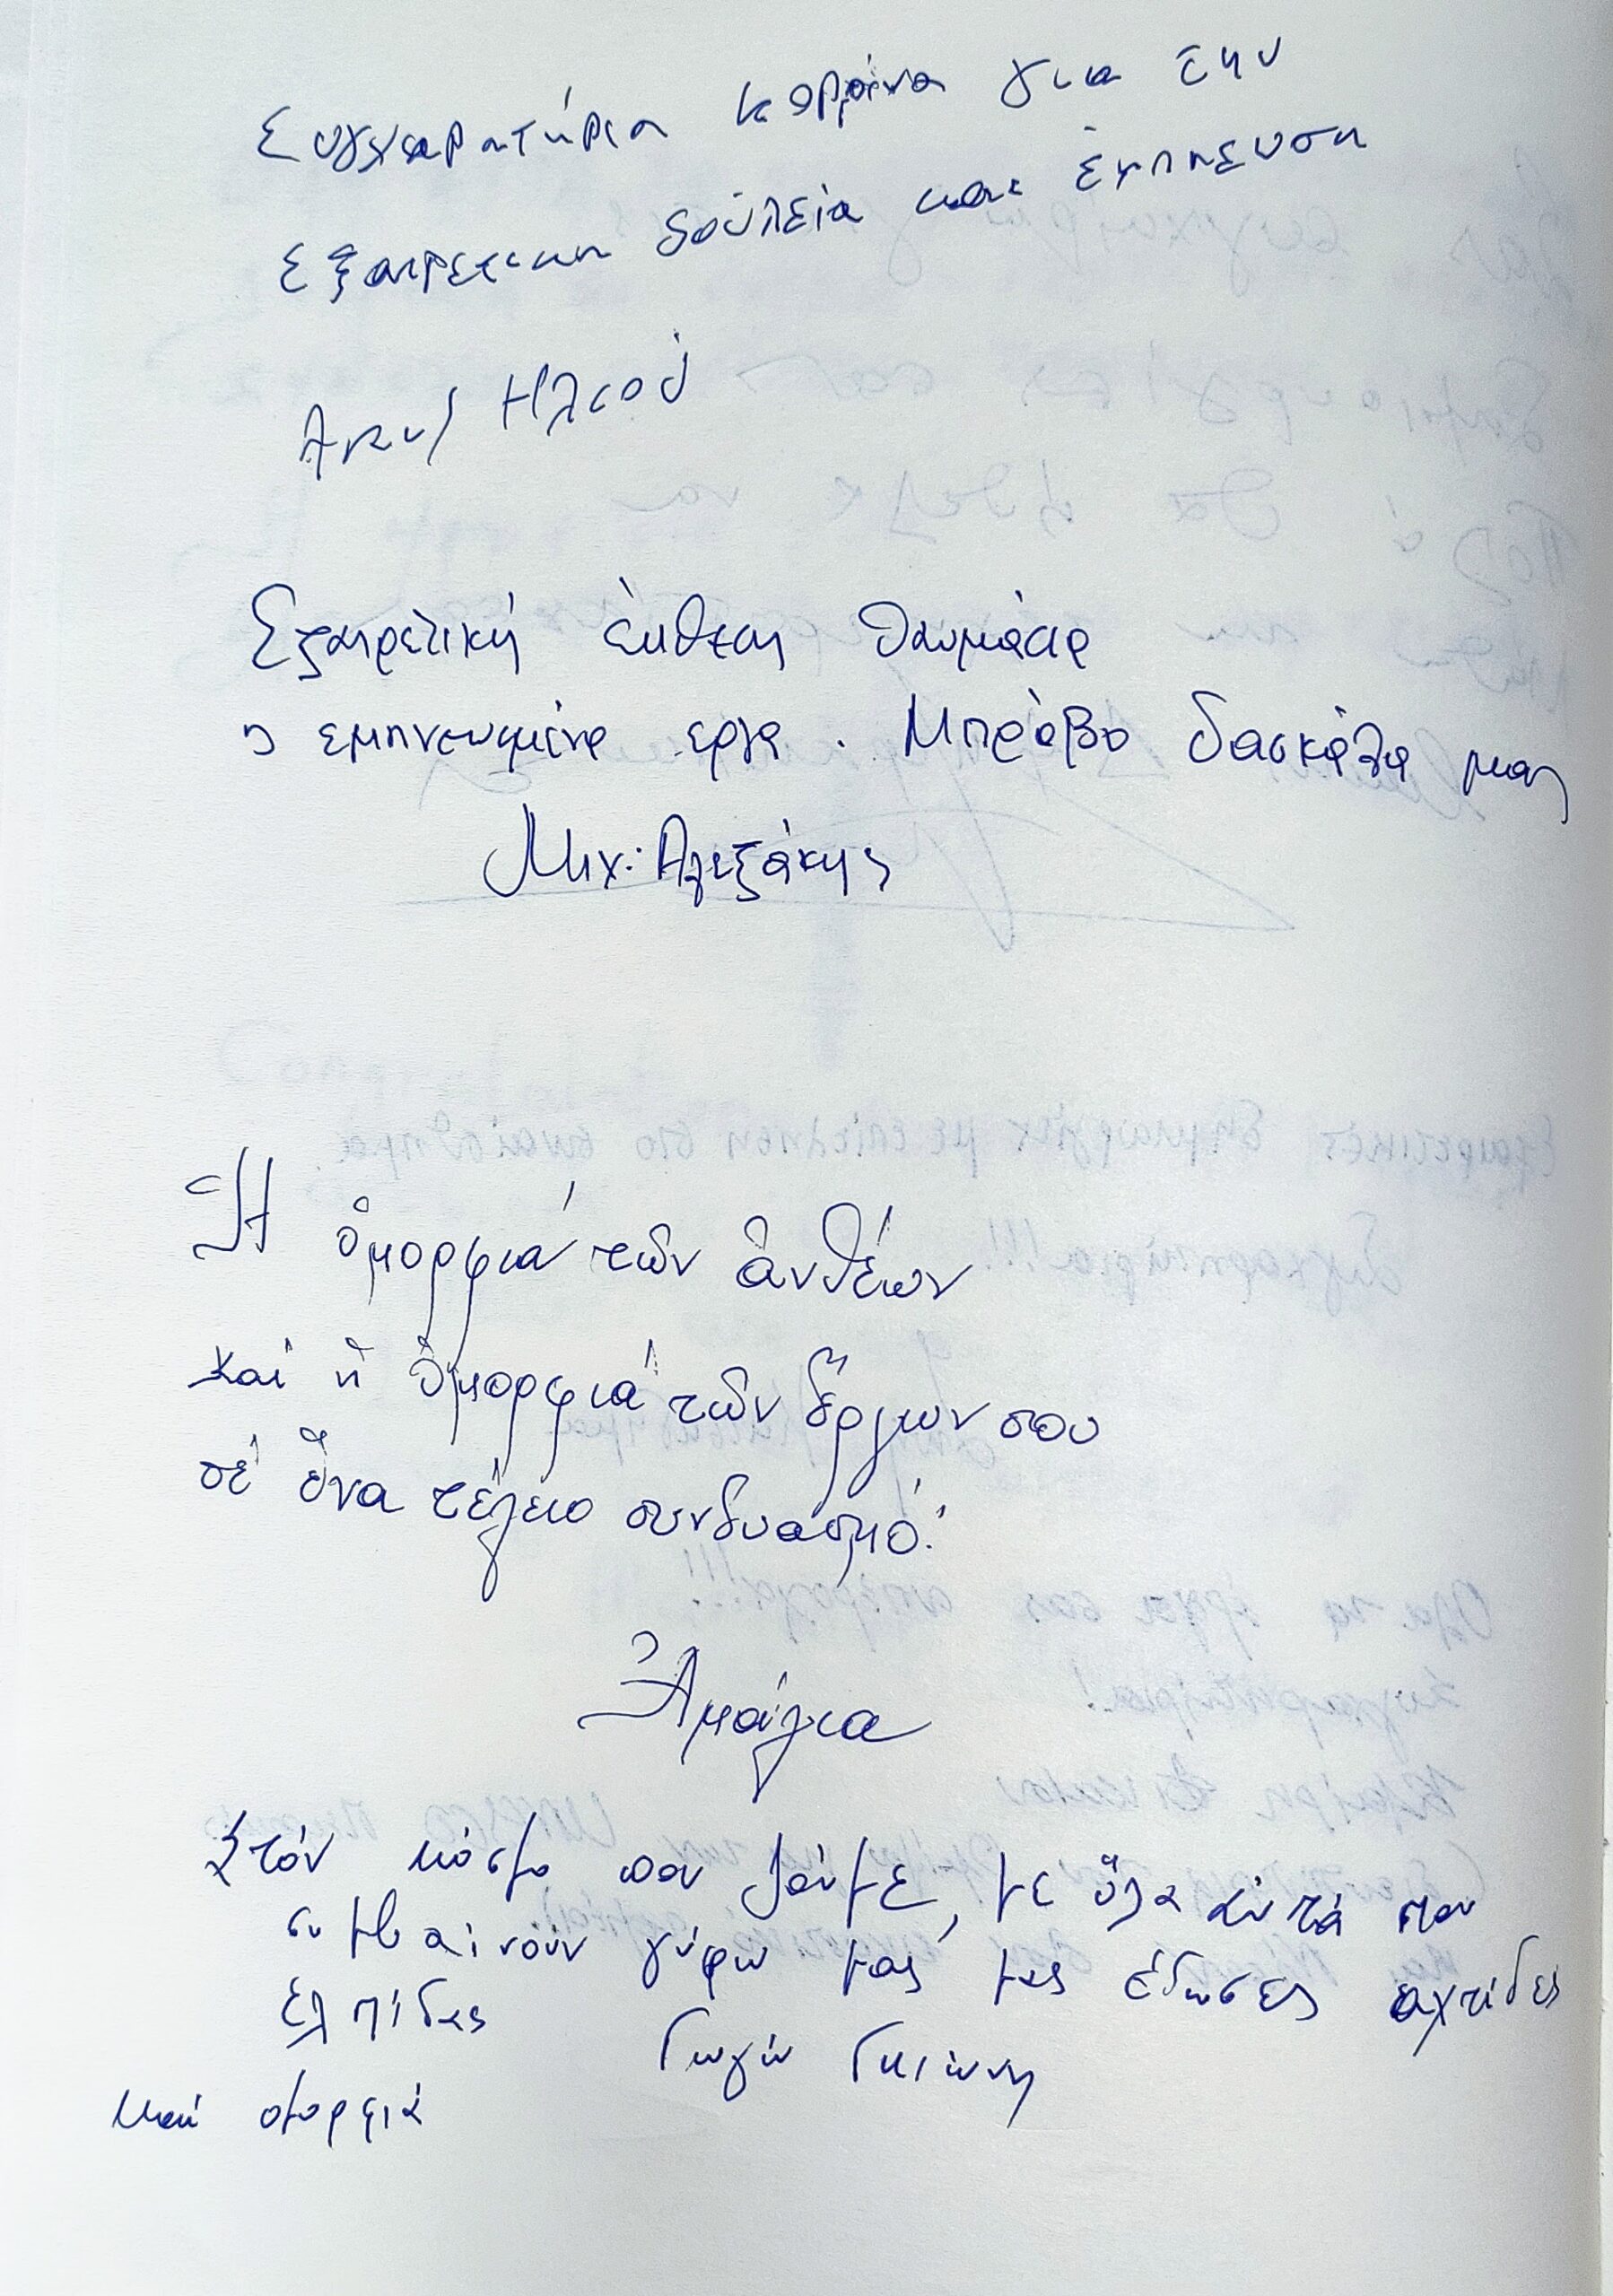 Συγχαρητήρια Κορρίνα για την
εξαιρετικη δουλεία και έμπνευση
Ηλιού
Εξαιρετική έκθεση θαυμάσια
εμπνευσμένα εργα. Μπράβο δασκάλα μας
Μιχ: Αλεξάκης
Ἡ ὀμορφιά τῶν ἀνθέων
καί ἡ ὀμορφιά τῶν ἔργων σου
σέ ἕνα τέλειο συνδυασμό!
Ἀμαλία
Στόν κόσμο που ζούμε, με ὅλα αὐτά που
συμβαίνουν γύρω μας μας έδωσες αχτίδες
ἐλπίδας
Γωγώ Γκιώνη
και ομορφιά